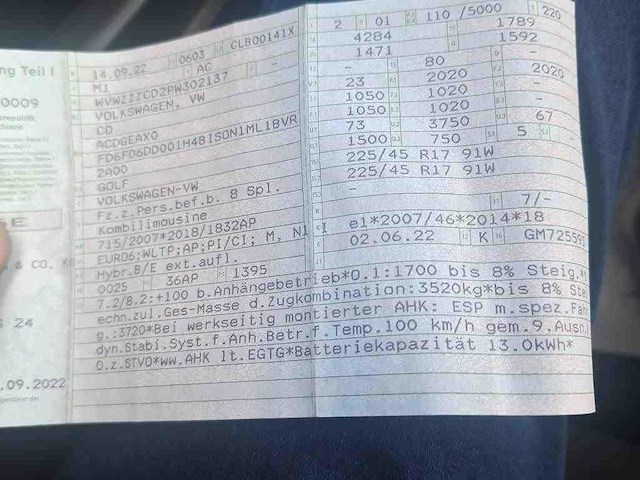 ng Teil I
0009
& CO. K
S 24
.09.2022
14.09.22 0603 CLB00141X
M1 AC -
WVWZZZCD2PW302137
VOLKSWAGEN, VW
CD
ACDGEAX0
FD6FD6DD001H4BISON1ML1BVR
2A00
GOLF
VOLKSWAGEN-VW
Fz.z.Pers.bef.b. 8 Spl.
Kombilimousine
715/2007*2018/1832AP
EURO6;WLTP;AP;PI/CI; M, N1 I
Hybr.B/E ext.aufl.
0025 36AP 1395
2 01 110 /5000 220
4284 1789
1471 1592
- 80 -
23 2020 2020
1050 1020 -
1050 1020 -
73 3750 67
1500 750 5 -
225/45 R17 91W
225/45 R17 91W
-
7/-
e1*2007/46*2014*18
02.06.22 K
7.2/8.2:+100 b.Anhängebetrieb*O.1:1700 bis 8% Steig.*
echn.zul.Ges-Masse d.Zugkombination:3520kg*bis 8% Ste
g.:3720*Bei werkseitig montierter AHK: ESP m.spez.Fah
dyn.Stabi.Syst.f.Anh.Betr.f.Temp.100 km/h gem.9.Ausn
O.z.STVO*ww.AHK lt.EGTG*Batteriekapazität 13.0kWh*